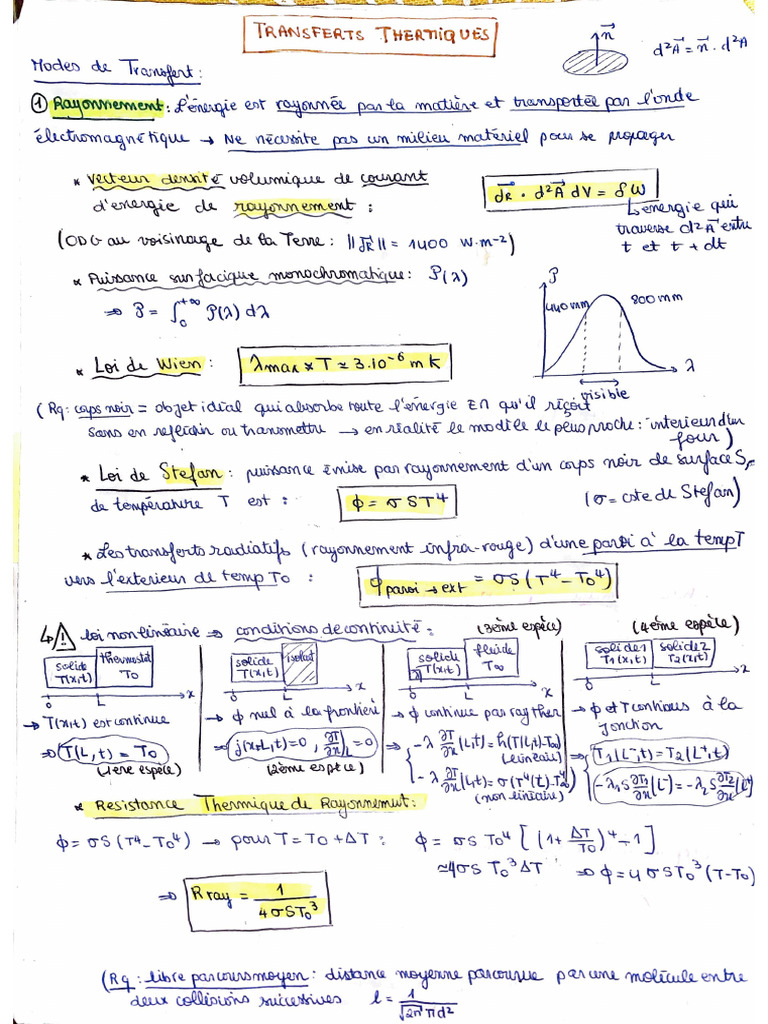 TRANSFERTS THERMIQUES
n⃗
d²A⃗ = n⃗ . d²A
Modes de Transfert :
① Rayonnement : L'énergie est rayonnée par la matière et transportée par l'onde
électromagnétique → Ne nécessite pas un milieu matériel pour se propager
* vecteur densité volumique de courant
d'énergie de rayonnement :
j⃗R . d²A⃗ dV = δW
↳ energie qui
traverse d²A⃗ entre
t et t + dt
(ODG au voisinage de la Terre : ||j⃗R|| = 1400 W.m⁻²)
* Puissance surfacique monochromatique : P(λ)
⇒ P = ∫₀^+∞ P(λ) dλ
P
440 mm
800 mm
λ
visible
* Loi de Wien : λmax * T ≃ 3.10⁻⁶ m K
(Rq : corps noir = objet idéal qui absorbe toute l'énergie EM qu'il reçoit
sans en réfléchir ou transmettre → en réalité le modèle le plus proche : interieur d'un
four)
* Loi de Stefan : puissance émise par rayonnement d'un corps noir de surface S,
de température T est : ϕ = σ S T⁴ (σ = cste de Stefan)
* Les transferts radiatifs (rayonnement infra-rouge) d'une paroi à la temp T
vers l'exterieur de temp T0 : ϕ paroi → ext = σS (T⁴ − T0⁴)
↳ ⚠ loi non linéaire ⇒ conditions de continuité : (3ème espèce) (4ème espèce)
solide T(x,t) thermostat T0
0 L x
→ T(x,t) est continue
⇒ T(L,t) = T0
(1ère espèce)
solide T(x,t) isolant
0 L x
→ ϕ nul à la frontière
⇒ j(x=L,t)=0 , ∂T/∂x|L = 0
(2ème espèce)
solide T(x,t) fluide T∞
0 L x
→ ϕ continue par ray ther
⇒ { −λ ∂T/∂x (L,t) = h(T(L,t)−T∞)
(linéaire)
−λ ∂T/∂x (L,t) = σ(T⁴(t)−T∞⁴)
(non linéaire)
solide 1 T1(x,t) solide 2 T2(x,t)
0 L x
→ ϕ et T continus à la
jonction
⇒ { T1(L⁻,t) = T2(L⁺,t)
−λ1 S ∂T1/∂x (L⁻) = −λ2 S ∂T2/∂x (L⁺)
* Resistance Thermique de Rayonnemnt :
ϕ = σS (T⁴ − T0⁴) → pour T = T0 + ΔT : ϕ = σS T0⁴ [ (1 + ΔT/T0)⁴ − 1 ]
≃ 4σS T0³ ΔT ⇒ ϕ = 4 σST0³ (T−T0)
⇒ R ray = 1 / 4σST0³
(Rq : libre parcours moyen : distance moyenne parcourue par une molécule entre
deux collisions successives l = 1 / √2 n* π d²